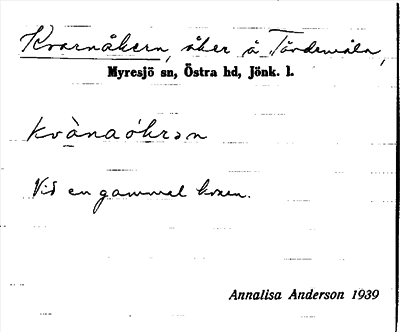 Kvarnåkern, åker å Tårdemåla,
Myresjö sn, Östra hd, Jönk. l.
kvànaókrən
Vid en gammal kvarn.
Annalisa Anderson 1939